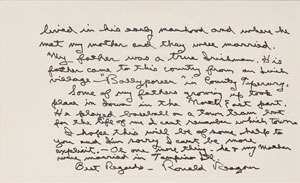 lived in his early manhood and where he
met my mother and they were married.
My father was a true Irishman. His
father came to this country from an Irish
village "Ballyporeen" in County Tipperary.
Some of my fathers growing up took
place in Iowa in the North East part.
He played baseball on a town team but
for the life of me I cant remember which town.
I hope this will be of some help to
you and I'm sorry I cant be more
explicit. — One sure thing — he & my Mother
were married in Fulton Ill.
Best Regards - Ronald Reagan